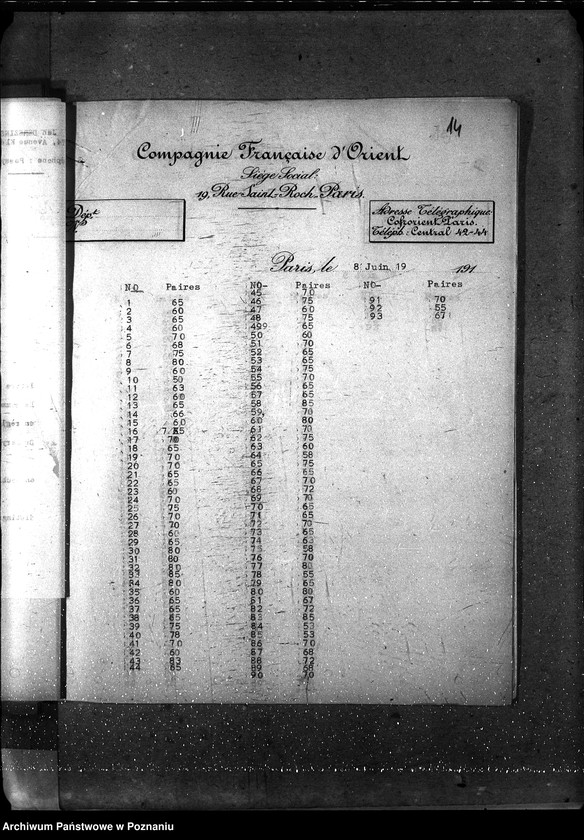 14
Compagnie Française d'Orient
Siège Social:
19, Rue Saint-Roch, Paris.
Dépt
Adresse Télégraphique
Coforient Paris.
Téléph: Central 42-44
Paris, le 8 Juin 19 191
NO Paires
1 65
2 60
3 65
4 60
5 70
6 68
7 75
8 80
9 60
10 50
11 63
12 60
13 65
14 66
15 60
16
17 70
18 65
19 70
20 70
21 65
22 65
23 60
24 70
25 75
26 70
27 70
28 60
29 65
30 80
31 80
32 80
33 85
34 80
35 60
36 65
37 65
38 85
39 75
40 78
41 70
42 60
43 83
44 85
NO- Paires
45 70
46 75
47 60
48 75
499 65
50 60
51 70
52 65
53 65
54 75
55 70
56 65
57 65
58 85
59, 70
60 80
61 70
62 75
63 60
64 58
65 75
66 65
67 70
68 72
69 70
70 65
71 65
72 70
73 65
74 63
75 58
76 70
77 80
78 55
79 65
80 80
81 67
82 72
83 85
84 53
85 53
86 70
87 68
88 72
89 68
90 70
NO- Paires
91 70
92 55
93 67
Archiwum Państwowe w Poznaniu